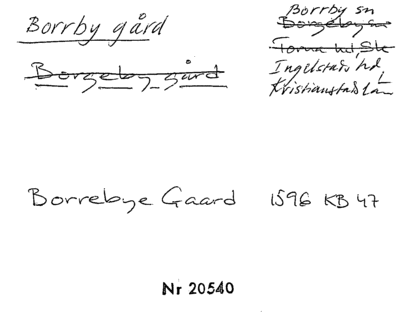 Borrby gård
Borgeby gård
Borrby sn
Borgeby sn
Torna hd, Sk
Ingelstads hd
Kristianstads län
Borrebye Gaard 1596 KB 47
Nr 20540